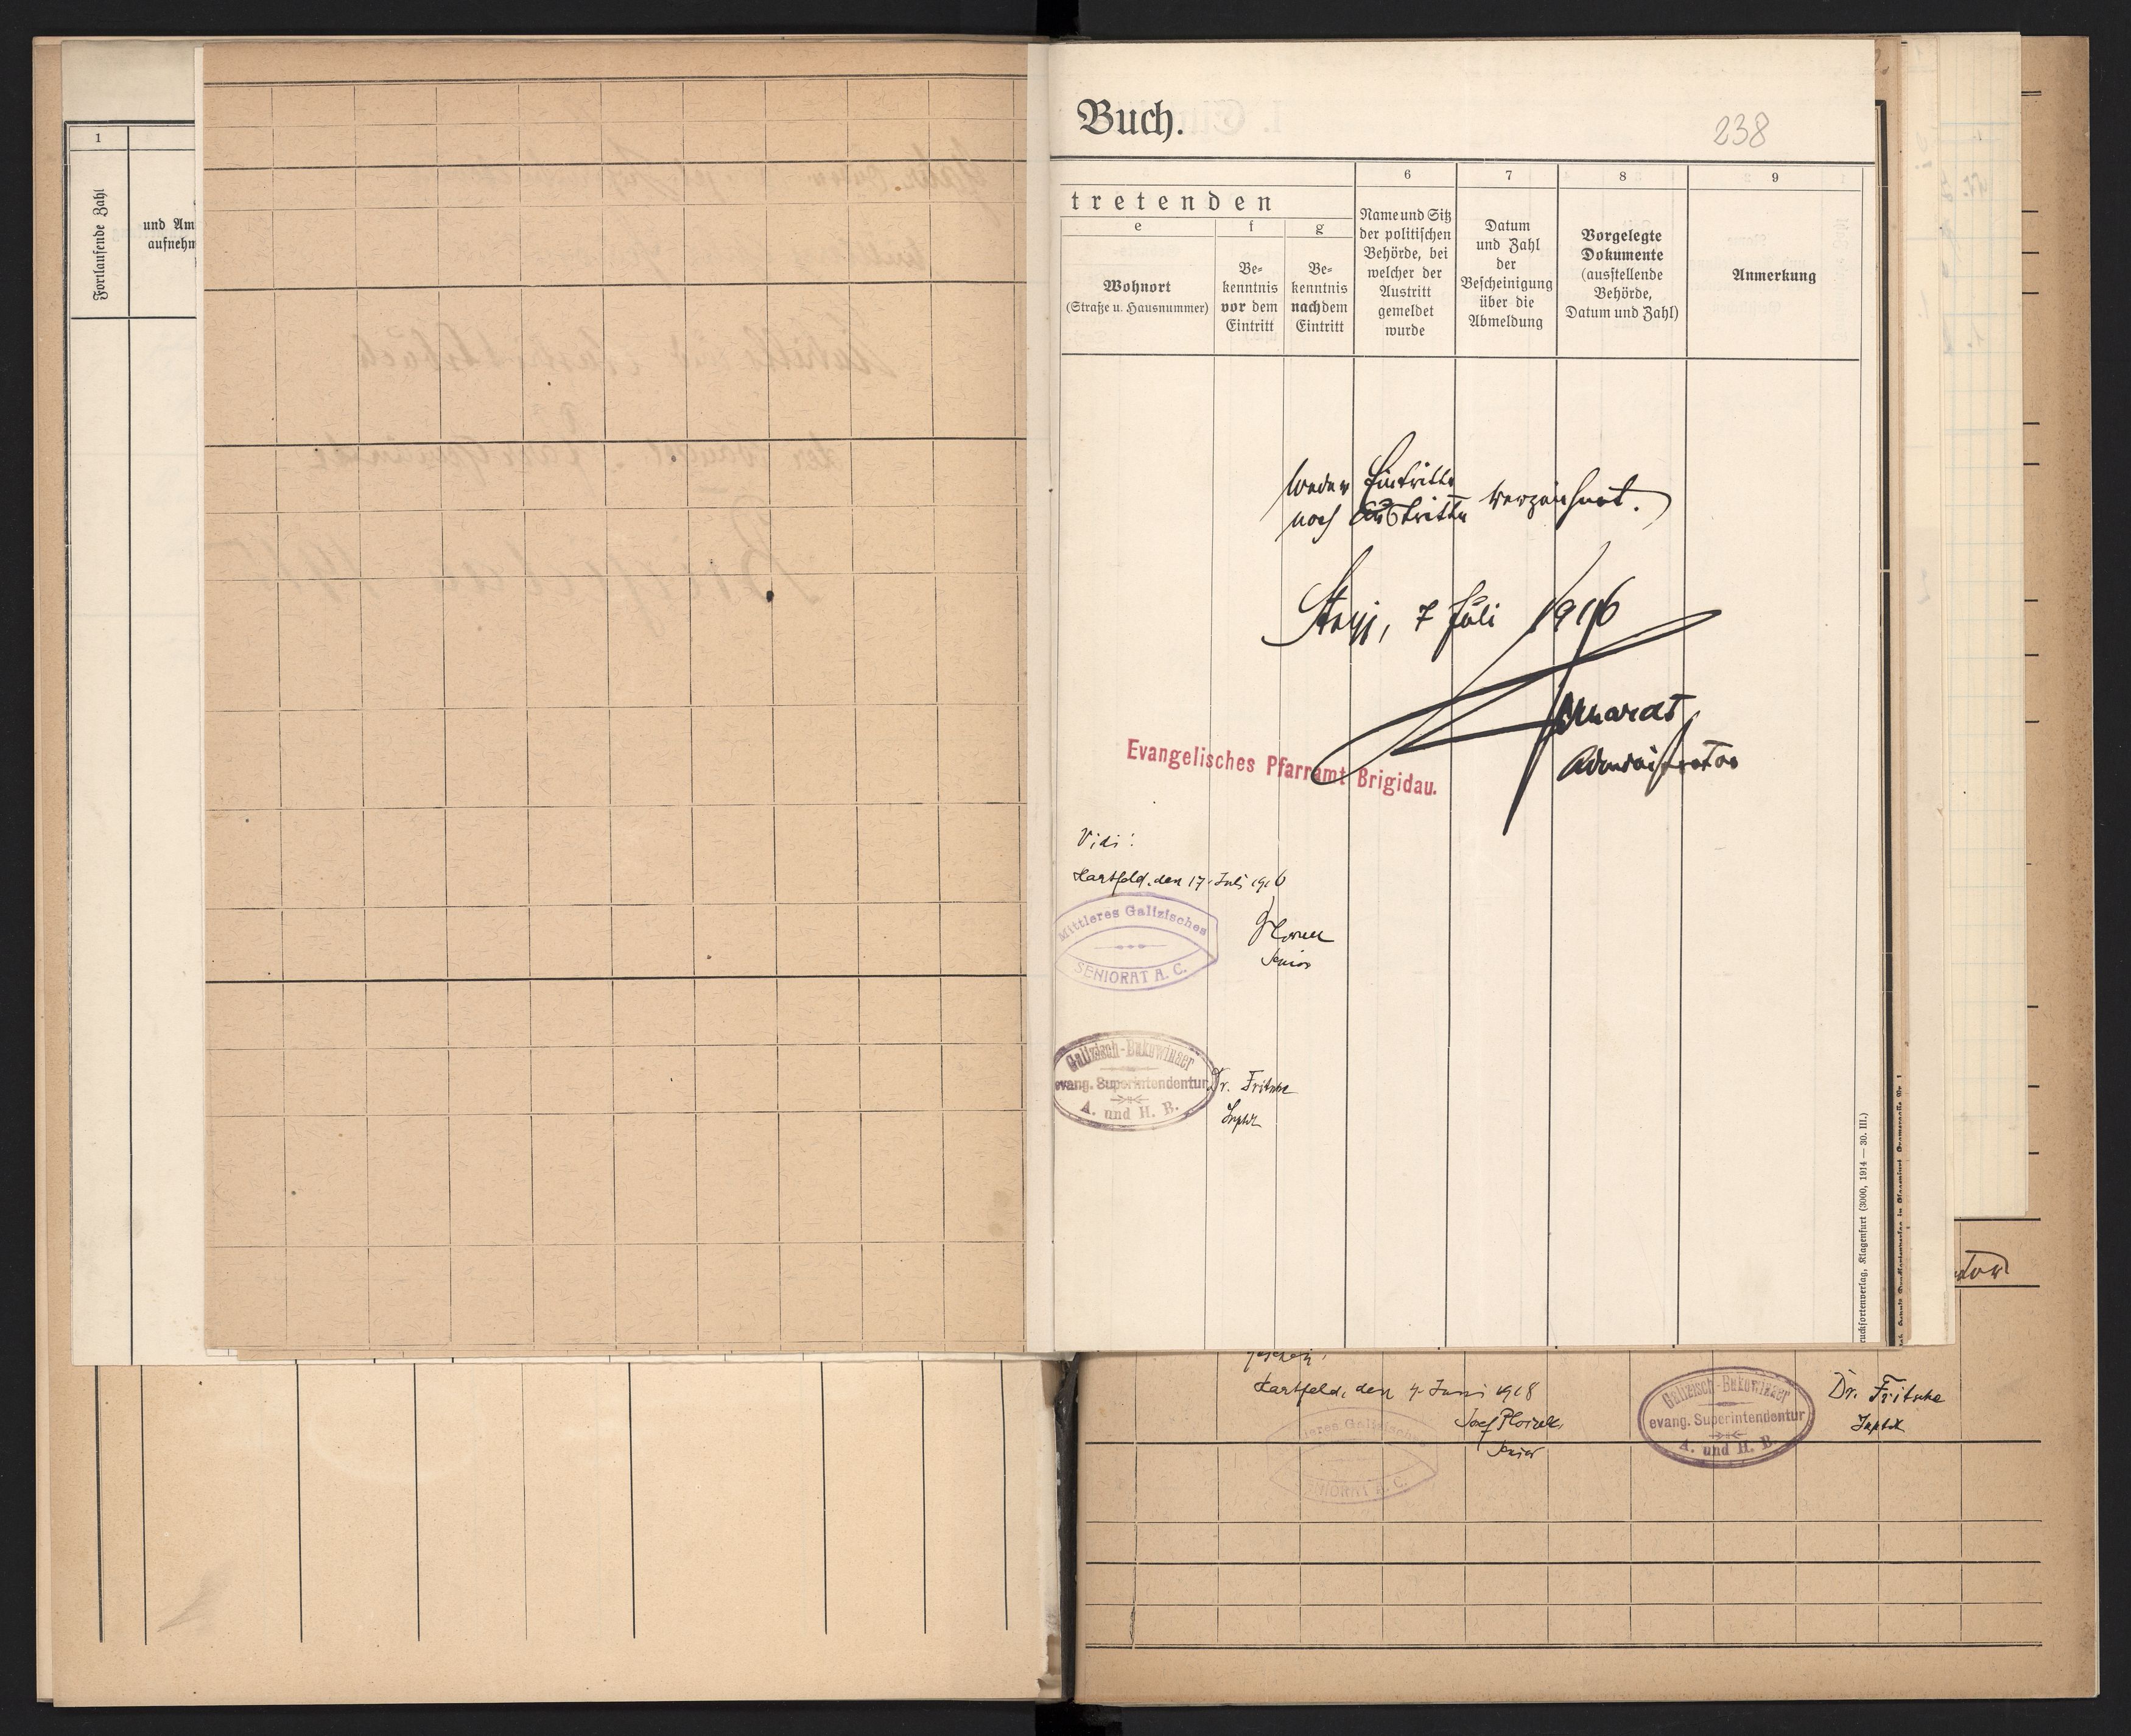 1
Fortlaufende Zahl
und Am
aufnehm
Buch.
238
tretenden
e
Wohnort
(Straße u. Hausnummer)
f
Be-
kenntnis
vor dem
Eintritt
g
Be-
kenntnis
nach dem
Eintritt
6
Name und Sitz
der politischen
Behörde, bei
welcher der
Austritt
gemeldet
wurde
7
Datum
und Zahl
der
Bescheinigung
über die
Abmeldung
8
Vorgelegte
Dokumente
(ausstellende
Behörde,
Datum und Zahl)
9
Anmerkung
Weder Eintritte
noch Austritte verzeichnet.
Stryj, 7 Juli 1916
Administrator
Evangelisches Pfarramt Brigidau.
Vidi:
Hartfeld, den 17. Juli 1916
Mittleres Galizisches
SENIORAT A. C.
Senior
Galizisch-Bukowinaer
evang. Superintendentur
A. und H. B.
Dr. Fritsche
Suptdt
rucksortenverlag, Klagenfurt (3000, 1914 — 30. III.)
Hartfeld, den 4. Juni 1918
Josef
Senior
leres Galizisches
ENIORAT A. C.
Galizisch-Bukowinaer
evang. Superintendentur
A. und H. B.
Dr. Fritsche
Suptdt